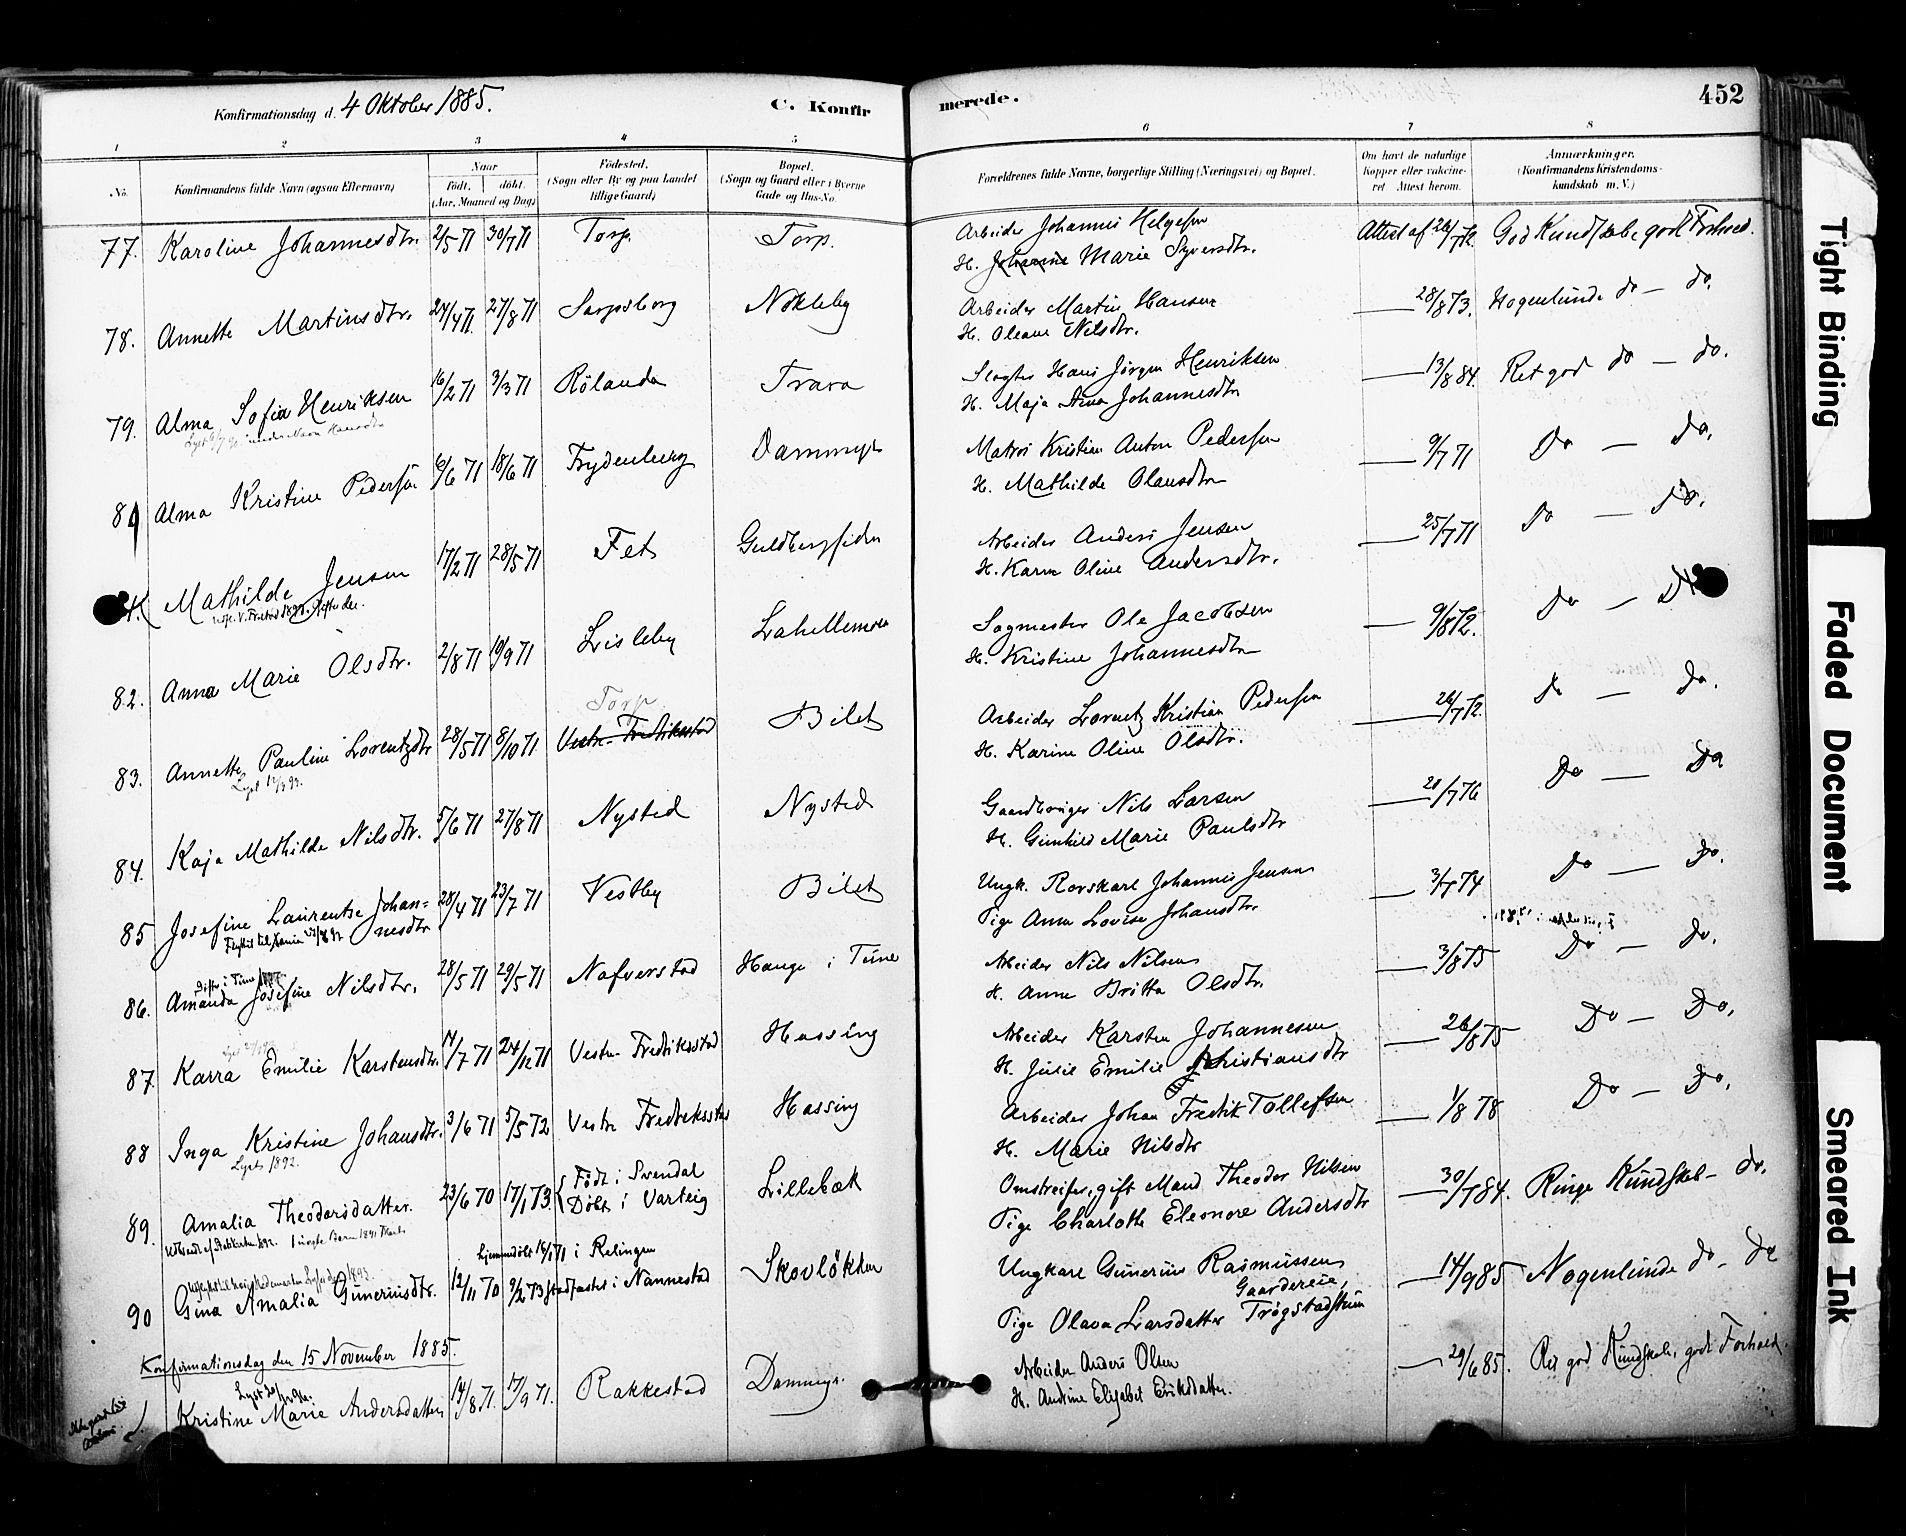 Konfirmationsdag d. 4 Oktober 1885.
C. Konfir
merede.
452
1 2 3 4 5 6 7 8
No.
Konfirmandens fulde Navn (ogsaa Efternavn)
Naar
født. døbt.
(Aar, Maaned og Dag)
Fødested.
(Sogn eller By og paa Landet
tillige Gaard)
Bopæl.
(Sogn og Gaard eller i Byerne
Gade og Hus-No.
Forældrenes fulde Navne, borgerlige Stilling (Næringsvei) og Bopæl.
Om havt de naturlige
Kopper eller vaccine-
ret Attest herom.
Anmærkninger.
(Konfirmandens kristendoms-
kundskab m. V.)
77. Karoline Johannesdtr. 2/5 71 30/7 71 Torp. Torp. Arbeider Johannes Helgesen Attest af 26/7 72. God Kundskab godt Forhold.
H. Johanne Marie Syversdtr.
78. Annette Martinsdtr. 24/4 71. 27/8 71 Sarpsborg Nökleby Arbeider Martin Hansen 28/8 73. Nogenlunde do — do.
H. Oleane Nilsdtr.
79. Alma Sofia Henriksen 16/2 71 3/3 71 Rölanda Trara Slagter Hans Jörgen Henriksen 13/8 84. Ret god do — do.
H. Maja Johannesdtr
Alma Kristine Pedersen 6/6 71 18/6 71 Frydenberg Dammyr Matros Kristian Anton Pedersen 9/7 71 Do — do.
H. Mathilde Olausdtr
Mathilde Jensen 17/2 71 28/5 71 Fet Guldbergsiden Arbeider Anders Jensen 25/7 71 Do — Do.
H. Karen Oline Andersdtr.
82. Anna Marie Olsdtr. 2/8 71 10/9 71 Lisleby Lahellemoen Sagmester Ole Jacobsen 9/8 72. Do — Do
H. Kristine Johannesdtr
Torp
83. Annette Pauline Lorentzdtr 28/5 71 8/10 71 Vestr. Fredrikstad Bilet Arbeider Lorentz Kristian Pedersen 26/7 72. do — do.
H. Karine Oline Olsdtr.
84. Kaja Mathilde Nilsdtr. 5/6 71 27/8 71 Nysted Nysted Gaardbruger Nils Larsen 7 76 Do — Do
H. Gunhild Marie Paulsdtr
85 Josefine Laurentse Johan= 28/4 71 23/7 71 Vestby Bilet Ungk. Rorskarl Johannes Jensen 3/7 74 Do — Do.
nesdtr
Pige Anna Lovise Johansdtr.
86. Amanda Josefine Nilsdtr. 28/5 71 29/5 71 Nafverstad Hauge i Tune Arbeider Nils Nilsen 3/8 75 Do — Do.
H. Anna Britta Olsdtr.
87. Karra Emilie Karstensdtr. 14/7 71 24/12 71 Vestr. Fredriksstad Hassing Arbeider Karsten Johannesen 26/8 75 Do — Do.
H. Julie Emilie Kristiansdtr
88 Inga Kristine Johansdtr. 3/6 71 5/5 72 Vestr Fredriksstad Hassing Arbeider Johan Fredrik Tollefsen 1/8 78 Do — Do.
Lyst 1892.
H. Marie Nilsdtr
89. Amalia Theodorsdatter. 23/6 70 17/1 73. Födt i Svendal Lillebæk Omstreifer, gift Mand Theodor Nilsen 30/7 84. Ringe Kundskab — do.
Döbt i Varteig
Pige Charlotte Eleonore Andersdtr
hjemmedöbt 18/1 71 i Rælingen
90 Gina Amalia Gunerinsdtr. 12/11 70 9/2 73 stadfæstet i Nannestad Skovlökken Ungkarl Gunerius Rasmussen 14/9 85 Nogenlunde do — do
Gaardereie,
Pige Olava Larsdatter Trögstadtrum
Konfirmationsdag den 15 November 1885.
Kristine Marie Andersdatter 14/8 71. 17/9 71. Rakkestad Dammyr. Arbeider Anders Olsen 29/6 85. Ret god Kundskab, godt Forhold.
H. Andrine Elisabet Eriksdatter.
Tight Binding
Faded Document
Smeared Ink